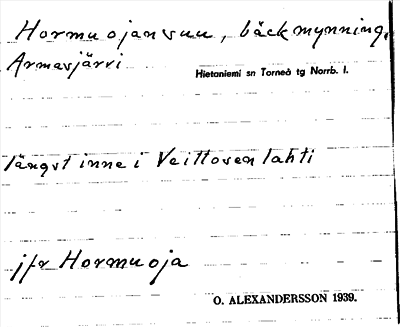 Hormuojansuu, bäckmynning,
Armasjärvi
Hietaniemi sn Torneå tg Norrb. l.
längst inne i Veittosenlahti
jfr Hormuoja
O. ALEXANDERSSON 1939.